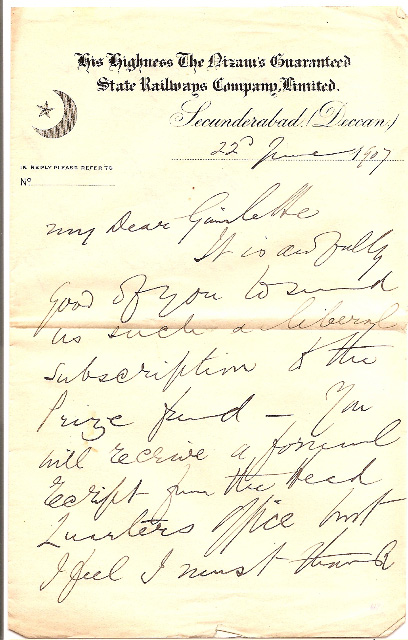 His Highness The Nizam's Guaranteed
State Railways Company, Limited.
Secunderabad (Deccan)
22d June 1907
IN REPLY PLEASE REFER TO
No
My Dear Gimlette
It is awfully
good of you to send
us such a liberal
subscription to the
Prize fund — You
will receive a formal
receipt from the Head
Quarters office but
I feel I must thank